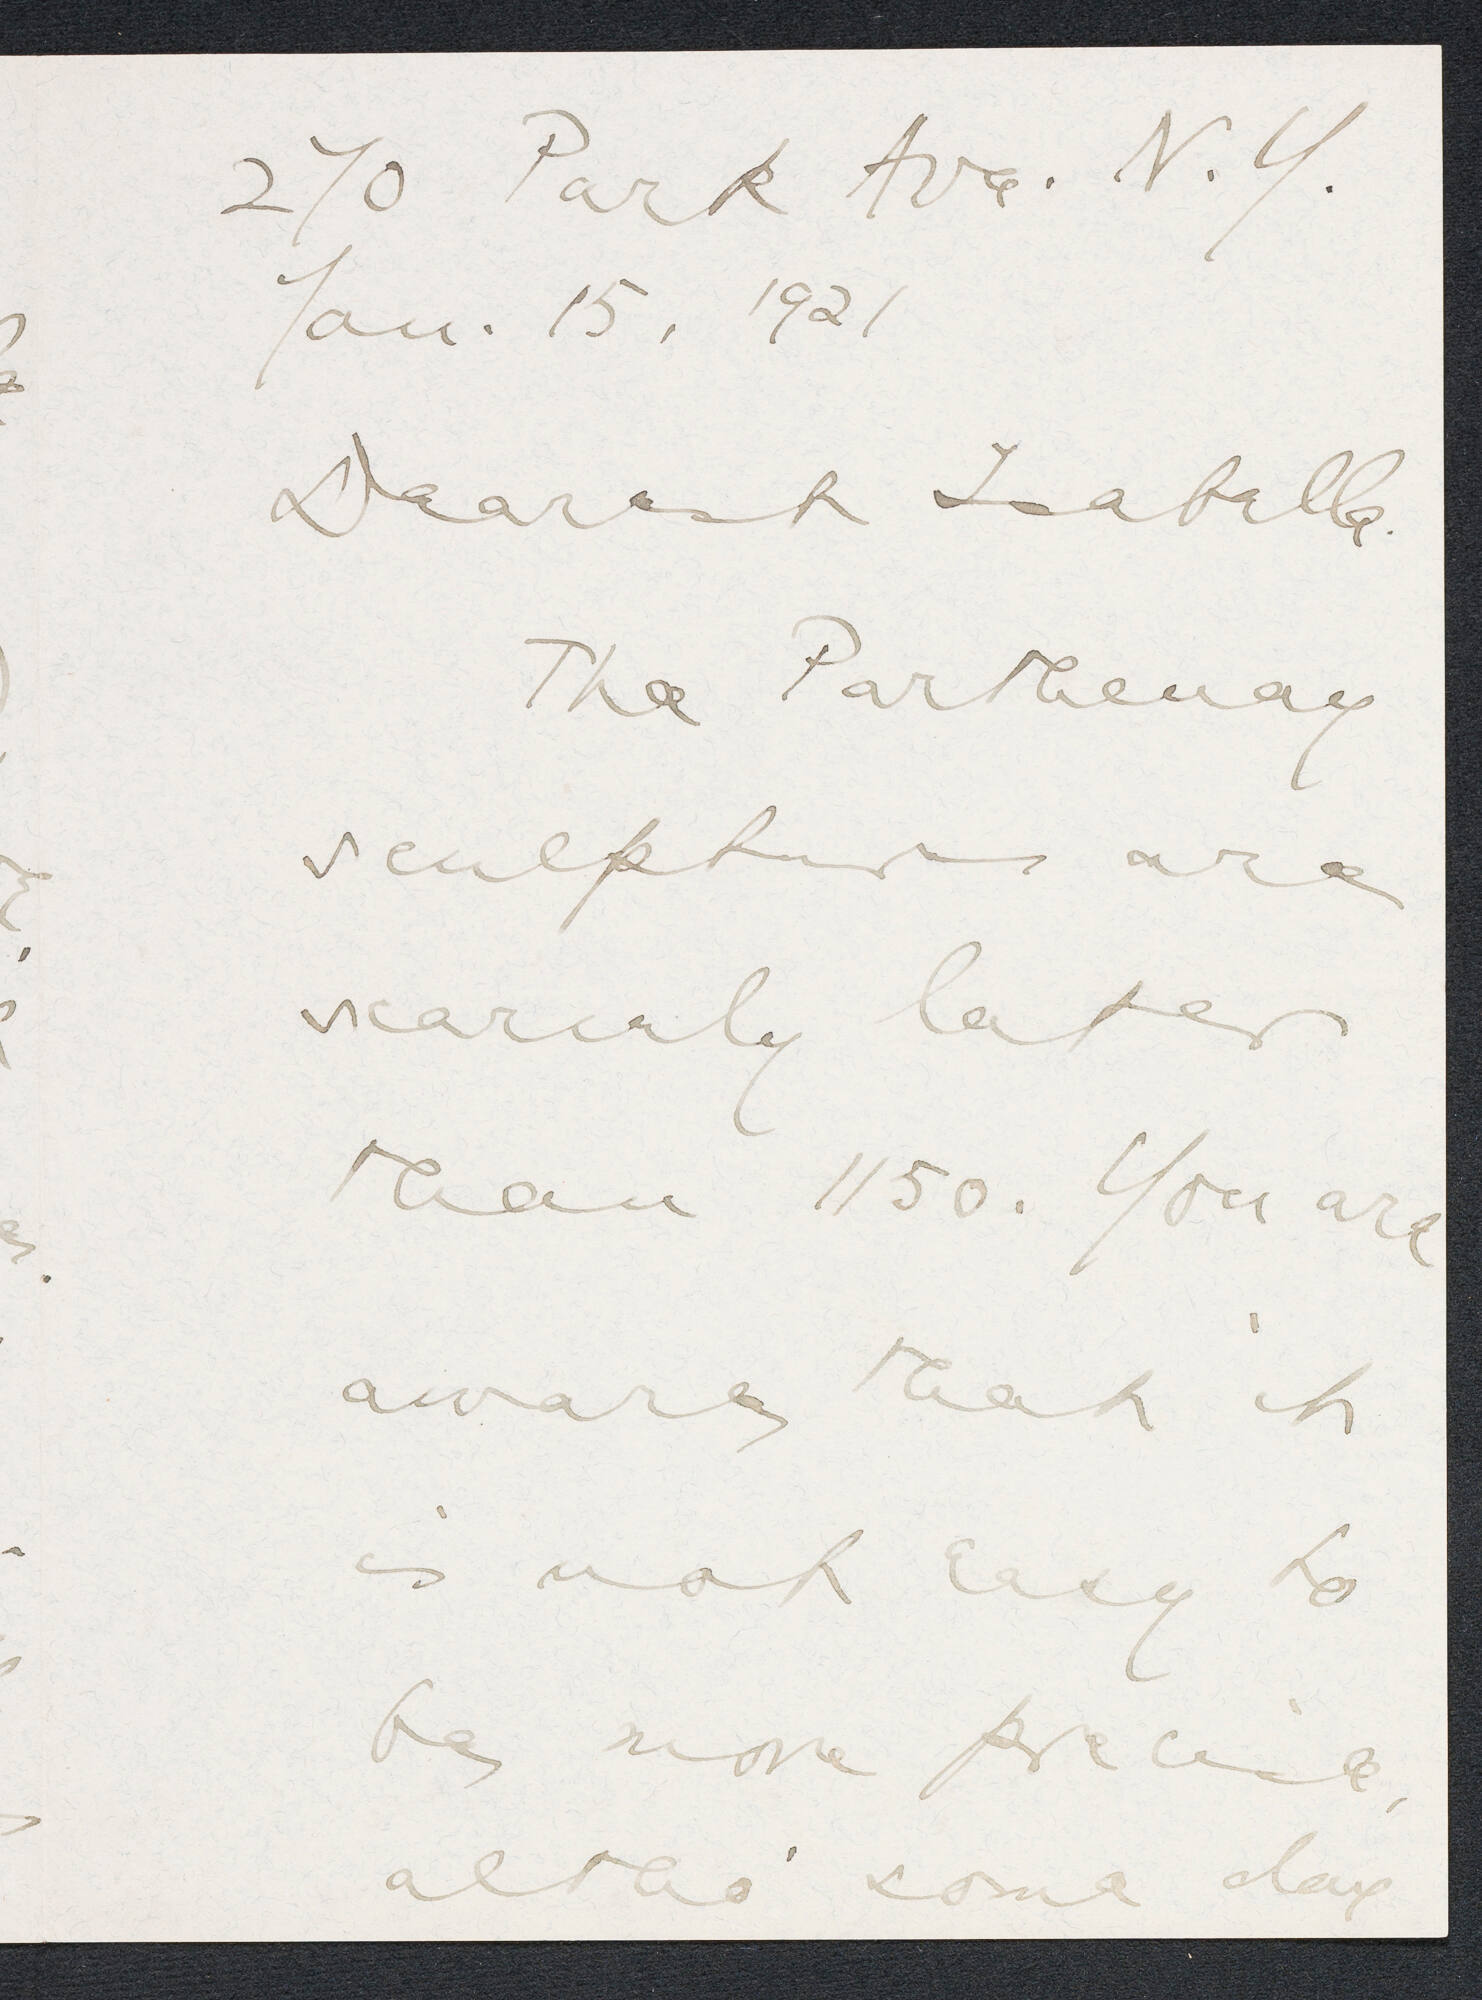 270 Park Ave. N.Y.
Jan. 15, 1921
Dearest Isabella.
The Parthenay
sculptures are
scarcely later
than 1150. You are
aware that it
is not easy to
be more precise,
altho' some day